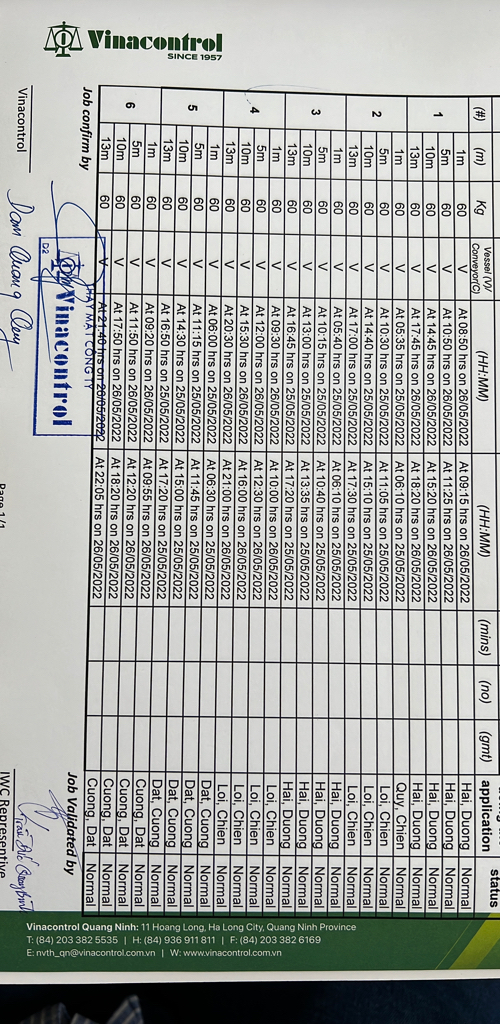 Vinacontrol
SINCE 1957
(#) (m) Kg Vessel (V)/ Conveyor(C) (HH:MM) (HH:MM) (mins) (no) (gmt) application status
1 1m 60 V At 08:50 hrs on 26/05/2022 At 09:15 hrs on 26/05/2022 Hai, Duong Normal
5m 60 V At 10:50 hrs on 26/05/2022 At 11:25 hrs on 26/05/2022 Hai, Duong Normal
10m 60 V At 14:45 hrs on 26/05/2022 At 15:20 hrs on 26/05/2022 Hai, Duong Normal
13m 60 V At 17:45 hrs on 26/05/2022 At 18:20 hrs on 26/05/2022 Hai, Duong Normal
2 1m 60 V At 05:35 hrs on 25/05/2022 At 06:10 hrs on 25/05/2022 Quy, Chien Normal
5m 60 V At 10:30 hrs on 25/05/2022 At 11:05 hrs on 25/05/2022 Loi, Chien Normal
10m 60 V At 14:40 hrs on 25/05/2022 At 15:10 hrs on 25/05/2022 Loi, Chien Normal
13m 60 V At 17:00 hrs on 25/05/2022 At 17:30 hrs on 25/05/2022 Loi, Chien Normal
3 1m 60 V At 05:40 hrs on 25/05/2022 At 06:10 hrs on 25/05/2022 Hai, Duong Normal
5m 60 V At 10:15 hrs on 25/05/2022 At 10:40 hrs on 25/05/2022 Hai, Duong Normal
10m 60 V At 13:00 hrs on 25/05/2022 At 13:35 hrs on 25/05/2022 Hai, Duong Normal
13m 60 V At 16:45 hrs on 25/05/2022 At 17:20 hrs on 25/05/2022 Hai, Duong Normal
4 1m 60 V At 09:30 hrs on 26/05/2022 At 10:00 hrs on 26/05/2022 Loi, Chien Normal
5m 60 V At 12:00 hrs on 26/05/2022 At 12:30 hrs on 26/05/2022 Loi, Chien Normal
10m 60 V At 15:30 hrs on 26/05/2022 At 16:00 hrs on 26/05/2022 Loi, Chien Normal
13m 60 V At 20:30 hrs on 26/05/2022 At 21:00 hrs on 26/05/2022 Loi, Chien Normal
5 1m 60 V At 06:00 hrs on 25/05/2022 At 06:30 hrs on 25/05/2022 Dat, Cuong Normal
5m 60 V At 11:15 hrs on 25/05/2022 At 11:45 hrs on 25/05/2022 Dat, Cuong Normal
10m 60 V At 14:30 hrs on 25/05/2022 At 15:00 hrs on 25/05/2022 Dat, Cuong Normal
13m 60 V At 16:50 hrs on 25/05/2022 At 17:20 hrs on 25/05/2022 Dat, Cuong Normal
6 1m 60 V At 09:20 hrs on 26/05/2022 At 09:55 hrs on 26/05/2022 Cuong, Dat Normal
5m 60 V At 11:50 hrs on 26/05/2022 At 12:20 hrs on 26/05/2022 Cuong, Dat Normal
10m 60 V At 17:50 hrs on 26/05/2022 At 18:20 hrs on 26/05/2022 Cuong, Dat Normal
13m 60 V At 21:40 hrs on 26/05/2022 At 22:05 hrs on 26/05/2022 Cuong, Dat Normal
Job confirm by Job Validated by
THAY MẶT CÔNG TY
Vinacontrol
D2
Dam Quang Quy
Vinacontrol IWC Representive
Page 1/1
Vinacontrol Quang Ninh: 11 Hoang Long, Ha Long City, Quang Ninh Province
T: (84) 203 382 5535 | H: (84) 936 911 811 | F: (84) 203 382 6169
E: nvth_qn@vinacontrol.com.vn | W: www.vinacontrol.com.vn